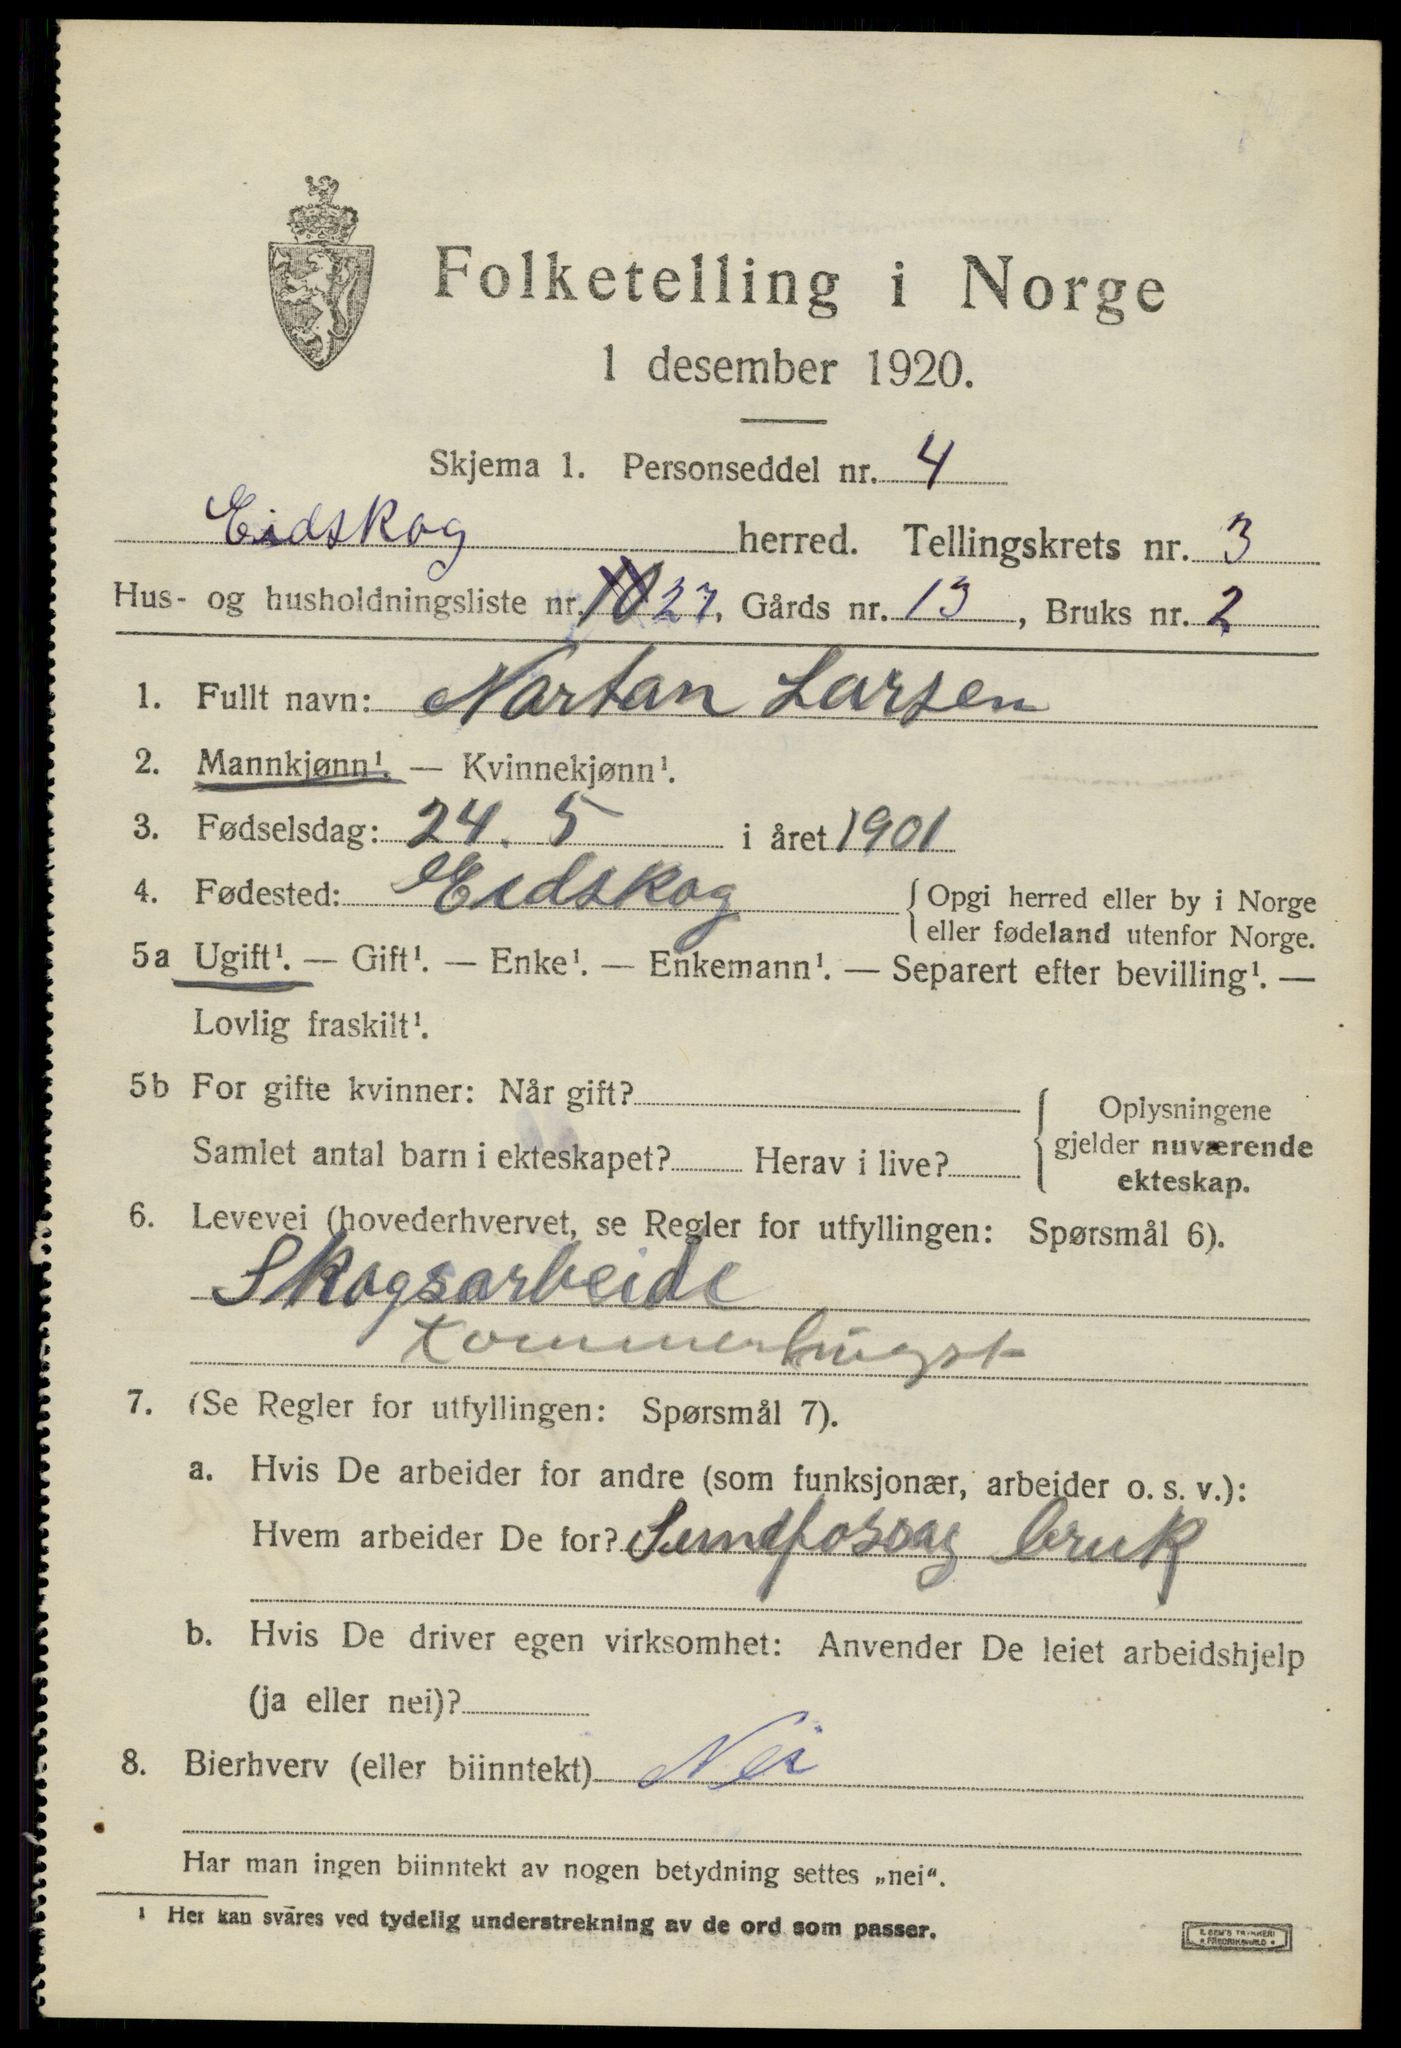 Folketelling i Norge
1 desember 1920.
Skjema 1. Personseddel nr. 4
Eidskog herred. Tellingskrets nr. 3
Hus- og husholdningsliste nr. 10 27, Gårds nr. 13, Bruks nr. 2
1. Fullt navn: Nartan Larsen
2. Mannkjønn¹. — Kvinnekjønn¹.
3. Fødselsdag: 24. 5 i året 1901
4. Fødested: Eidskog { Opgi herred eller by i Norge
eller fødeland utenfor Norge.
5a Ugift¹. — Gift¹. — Enke¹. — Enkemann¹. — Separert efter bevilling¹. —
Lovlig fraskilt¹.
5b For gifte kvinner: Når gift?
Samlet antal barn i ekteskapet? Herav i live?
{ Oplysningene
gjelder nuværende
ekteskap.
6. Levevei (hovederhvervet, se Regler for utfyllingen: Spørsmål 6).
Skogsarbeide
tømmerhugst
7. (Se Regler for utfyllingen: Spørsmål 7).
a. Hvis De arbeider for andre (som funksjonær, arbeider o. s. v.):
Hvem arbeider De for? bruk
b. Hvis De driver egen virksomhet: Anvender De leiet arbeidshjelp
(ja eller nei)?
8. Bierhverv (eller biinntekt) Nei
Har man ingen biinntekt av nogen betydning settes „nei“.
¹ Her kan svares ved tydelig understrekning av de ord som passer.